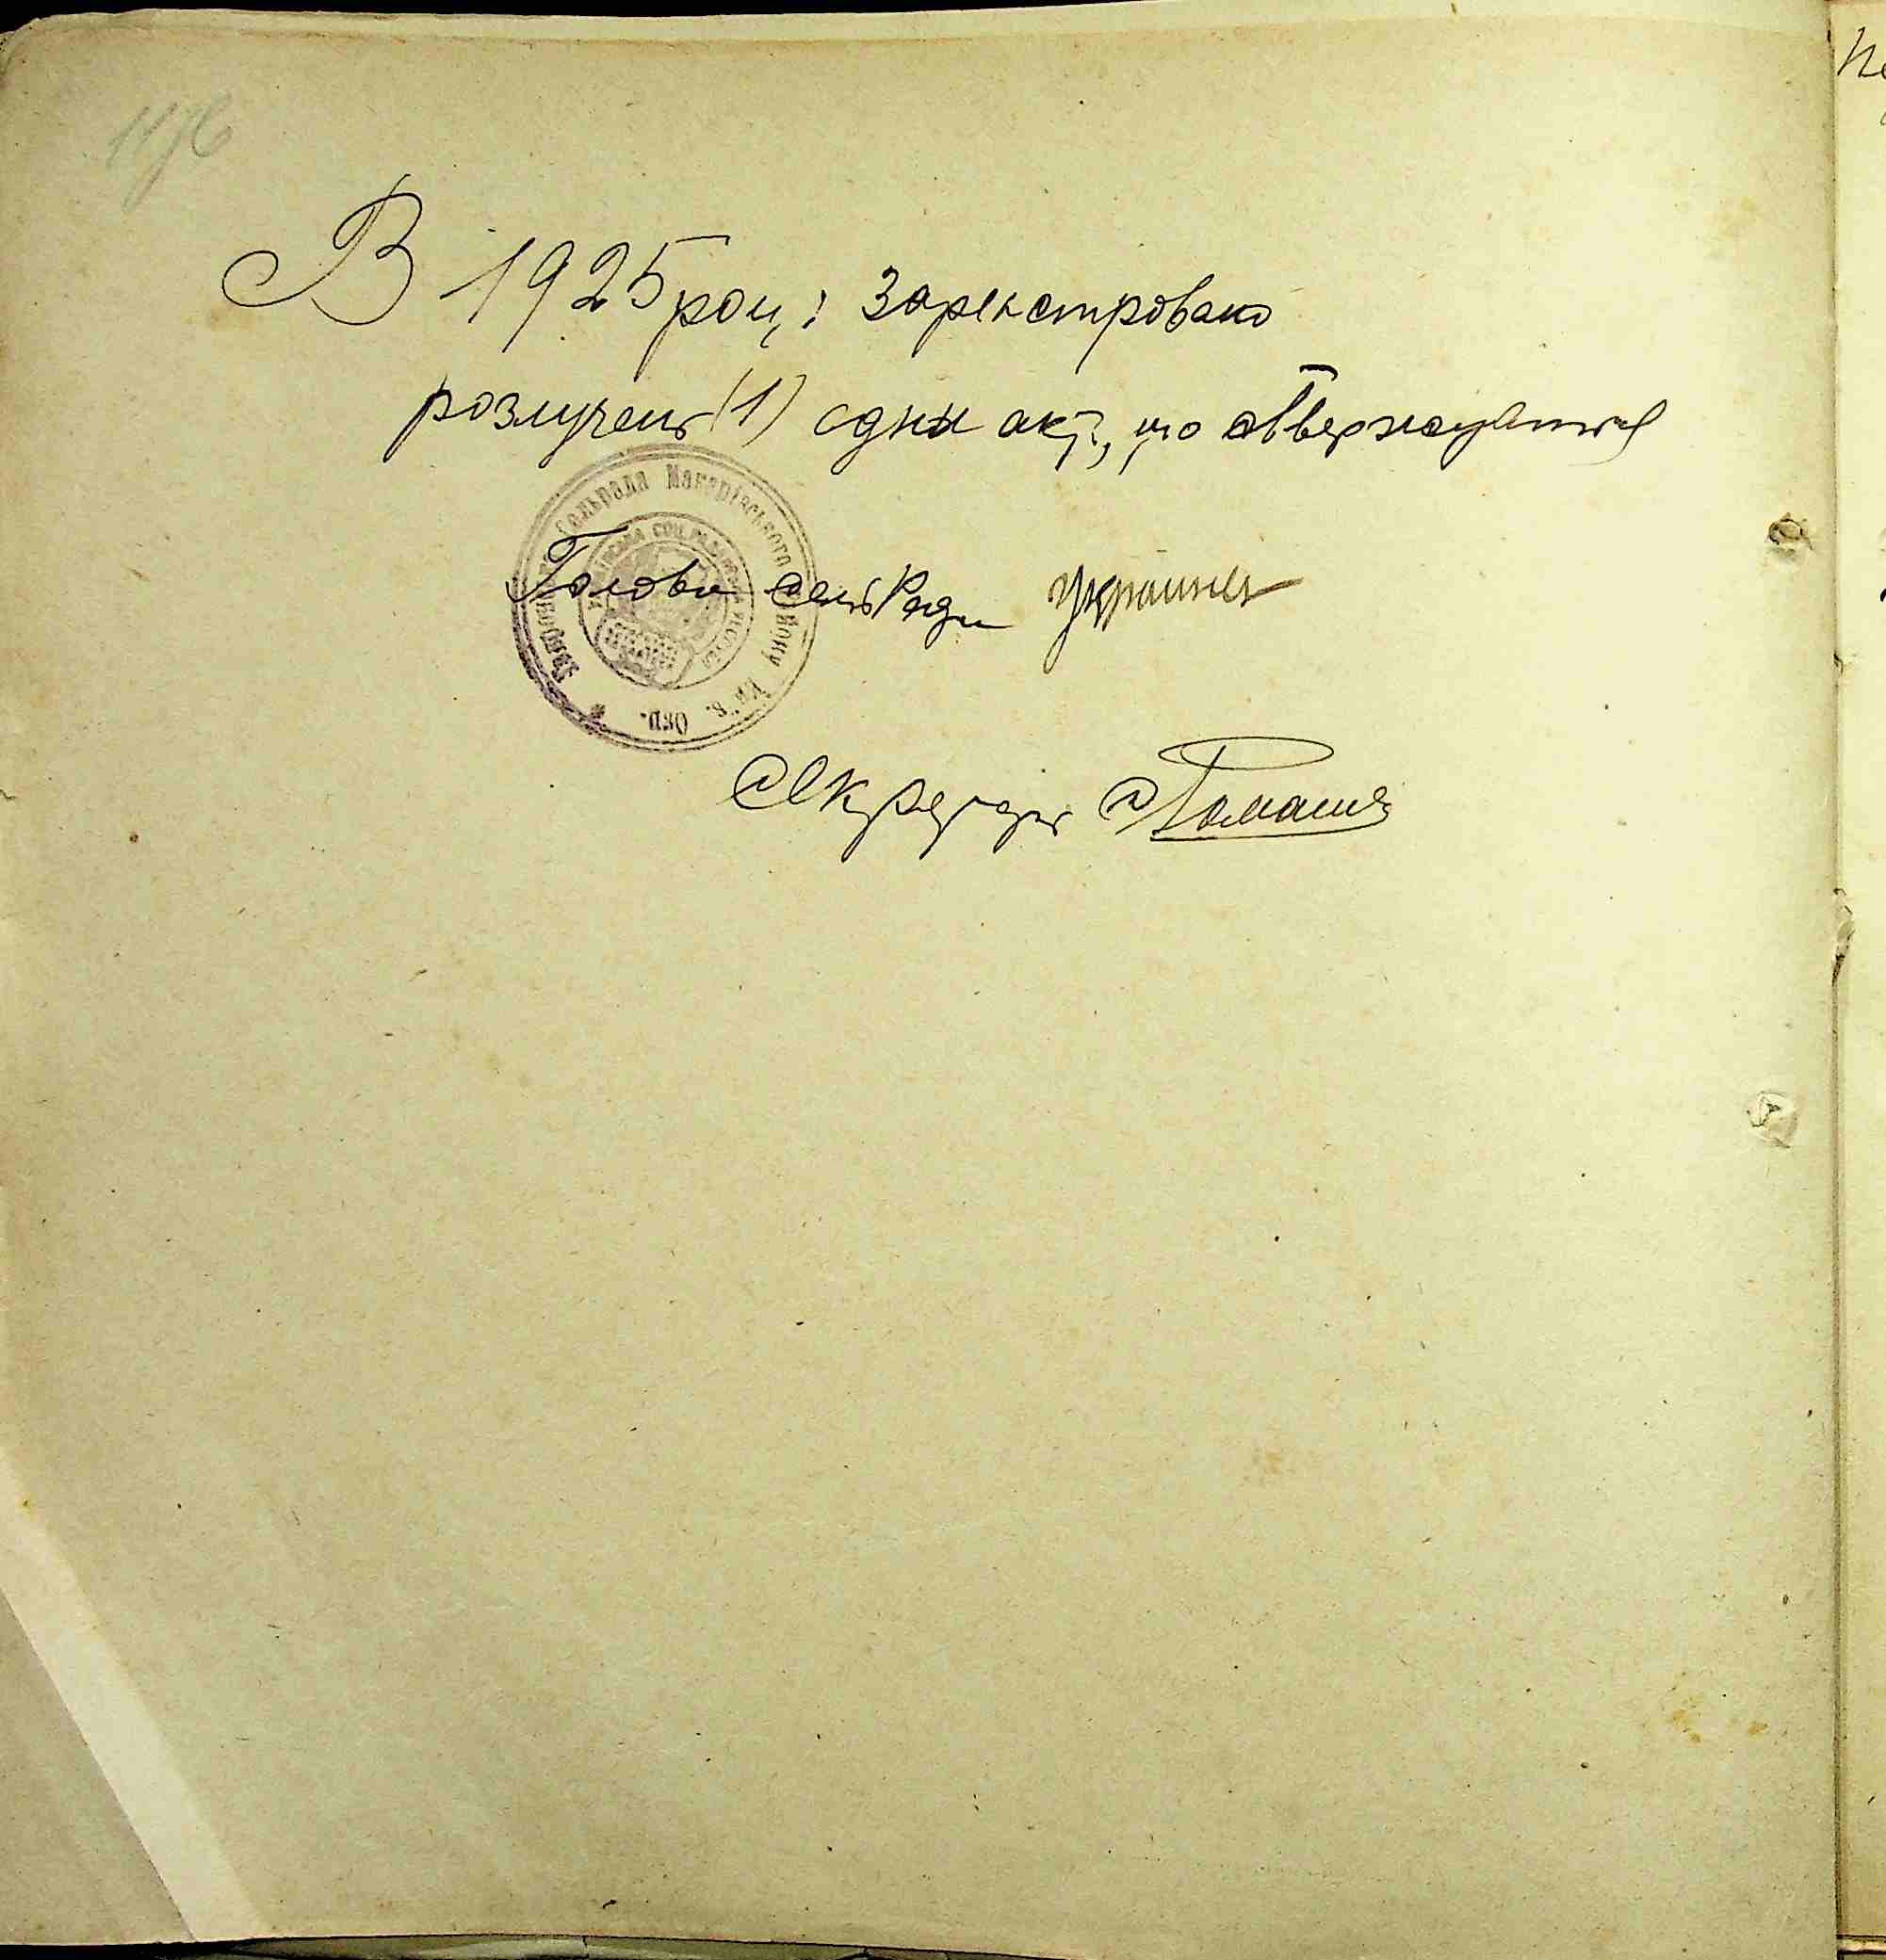 В 1925 році зареєстровано
розлучень (1) один акт, що ствержується
Сельрада Макарівського
Голова сельРади Українець
Секретарь